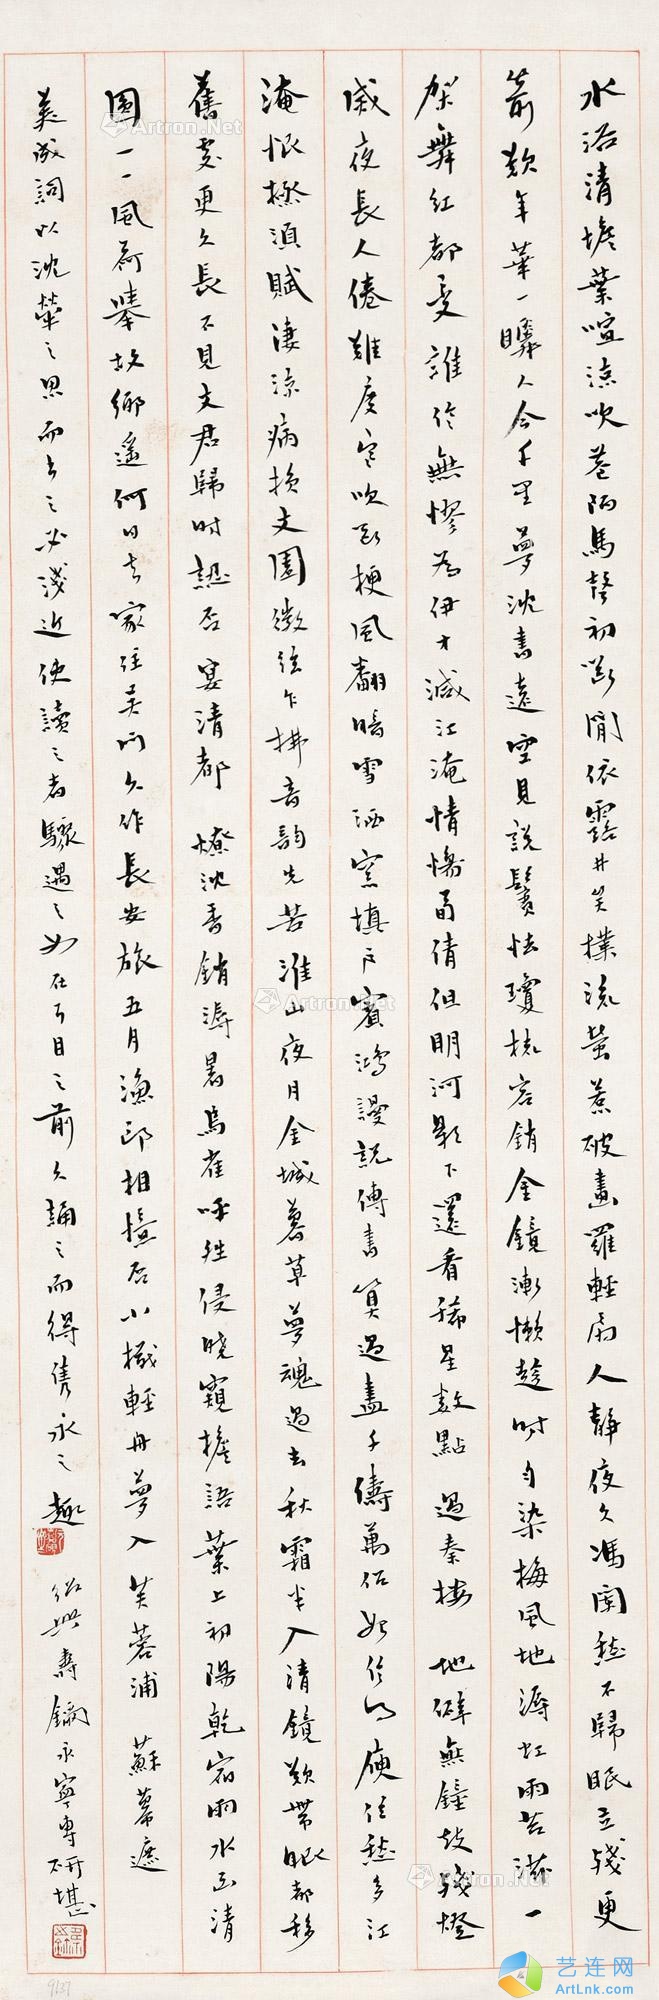 水浴清蟾葉喧涼吹巷陌馬聲初斷閒依露井笑撲流螢惹破畫羅輕扇人靜夜久馮闌愁不歸眠立殘更
箭歎年華一瞬人今千里夢沈書遠空見說鬢怯瓊梳容銷金鏡漸懶趁時勻染梅風地溽虹雨苔滋一
架舞紅都變誰信無憀為伊才減江淹情傷荀倩但明河影下還看稀星數點 過秦樓 地僻無鐘鼓殘燈
滅夜長人倦難度寒吹斷梗風翻暗雪洒窗填戶賓鴻謾說傳書算過盡千儔萬侶始信得庾信愁多江
淹恨極須賦淒涼病損文園徽弦乍拂音韵先苦淮山夜月金城暮草夢魂過去秋霜半入清鏡歎帶眼都移
舊處更久長不見文君歸時認否 宴清都 燎沈香銷溽暑鳥雀呼晴侵曉窺檐語葉上初陽乾宿雨水面清
圓一一風荷舉故鄉遙何日去家住吳門久作長安旅五月漁郎相憶否小檝輕舟夢入芙蓉浦 蘇幕遮
美成詞以沈摯之思而出之必淺近使讀之者驟遇之如在耳目之前久誦之而得雋永之趣
紹興壽鏞永寧專研堪
Artron.Net
艺连网
ArtLnk.Com
9137